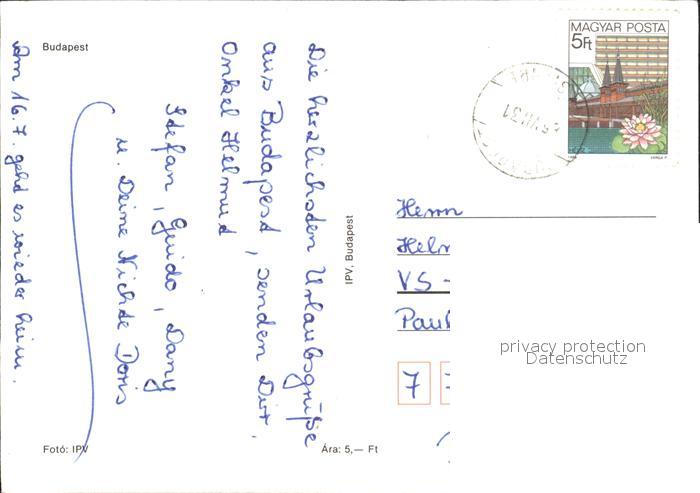 Budapest
Die herzlichsten Urlaubsgrüße
aus Budapest, senden Dir,
Onkel Helmud
Stefan, Guido, Dany
u. Deine Nichte Doris
Am 16.7. geht es wieder heim.
Fotó: IPV
Ára: 5,— Ft
IPV, Budapest
MAGYAR POSTA
5Ft
Herrn
Helm
VS -
Paul
7
privacy protection
Datenschutz